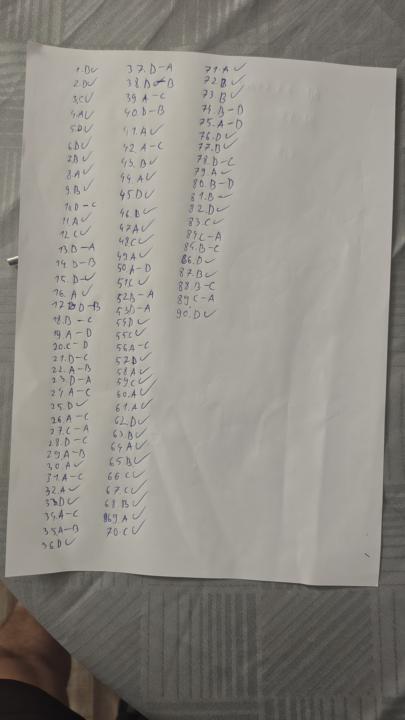 1.D✓
2.D✓
3.C✓
4.A✓
5.D✓
6.D✓
7.B✓
8.A✓
9.B✓
10.D-C
11.A✓
12.C✓
13.B-A
14.D-B
15.D✓
16.A✓
17.D-B
18.B-C
19.A-D
20.C-D
21.D-C
22.A-B
23.D-A
24.A-C
25.D✓
26.A-C
27.C-A
28.D-C
29.A-B
30.A✓
31.A-C
32.A✓
33.D✓
34.A-C
35.A-B
36.D✓
37.D-A
38.D-B
39.A-C
40.D-B
41.A✓
42.A-C
43.B✓
44.A✓
45.D✓
46.D✓
47.A✓
48.C✓
49.A✓
50.A-D
51.C✓
52.B-A
53.D-A
54.D✓
55.C✓
56.A-C
57.D✓
58.A✓
59.C✓
60.A✓
61.A✓
62.D✓
63.B✓
64.A✓
65.B✓
66.C✓
67.C✓
68.B✓
69.A✓
70.C✓
71.A✓
72.B✓
73.B✓
74.B-D
75.A-D
76.D✓
77.B✓
78.D-C
79.A✓
80.B-D
81.B✓
82.D✓
83.C✓
84.C-A
85.B-C
86.D✓
87.B✓
88.B-C
89.C-A
90.D✓